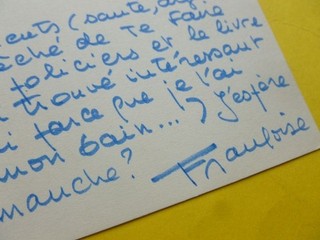 ents (santé,
êché de te faire
policiers et le livre
trouvé intéressant
parce que je l'ai
mon bain... J'espère
manche?
Françoise